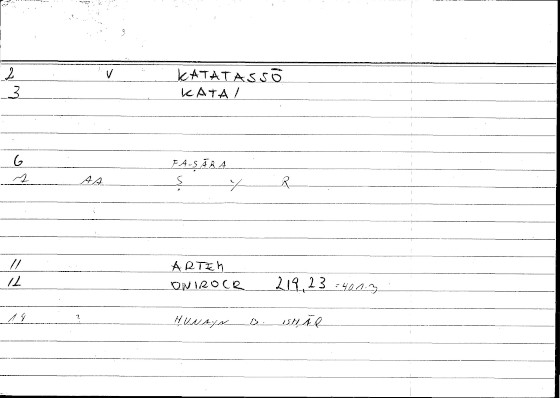 2 V KATATASSŌ
3 KATAI
6 FA-ṢĀRA
AA Ṣ Y R
11 ARTEM
12 ONIROCR 219,23
14 ? ḤUNAYN B. ISḤĀQ